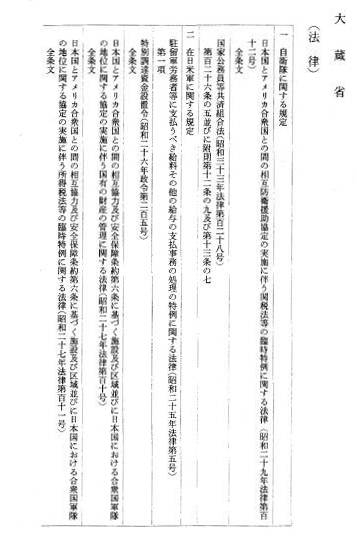 大蔵省
(法律)
一 自衛隊に関する規定
日本国とアメリカ合衆国との間の相互防衛援助協定の実施に伴う関税法等の臨時特例に関する法律(昭和二十九年法律第百
十二号)
全条文
国家公務員等共済組合法(昭和三十三年法律第百二十八号)
第百二十六条の五並びに附則第十二条の九及び第十三条の七
二 在日米軍に関する規定
駐留軍労務者等に支払うべき給料その他の給与の支払事務の処理の特例に関する法律(昭和二十五年法律第五号)
第一項
特別調達資金設置令(昭和二十六年政令第二百五号)
全条文
日本国とアメリカ合衆国との間の相互協力及び安全保障条約第六条に基づく施設及び区域並びに日本国における合衆国軍隊
の地位に関する協定の実施に伴う国有の財産の管理に関する法律(昭和二十七年法律第百十号)
全条文
日本国とアメリカ合衆国との間の相互協力及び安全保障条約第六条に基づく施設及び区域並びに日本国における合衆国軍隊
の地位に関する協定の実施に伴う所得税法等の臨時特例に関する法律(昭和二十七年法律第百十一号)
全条文